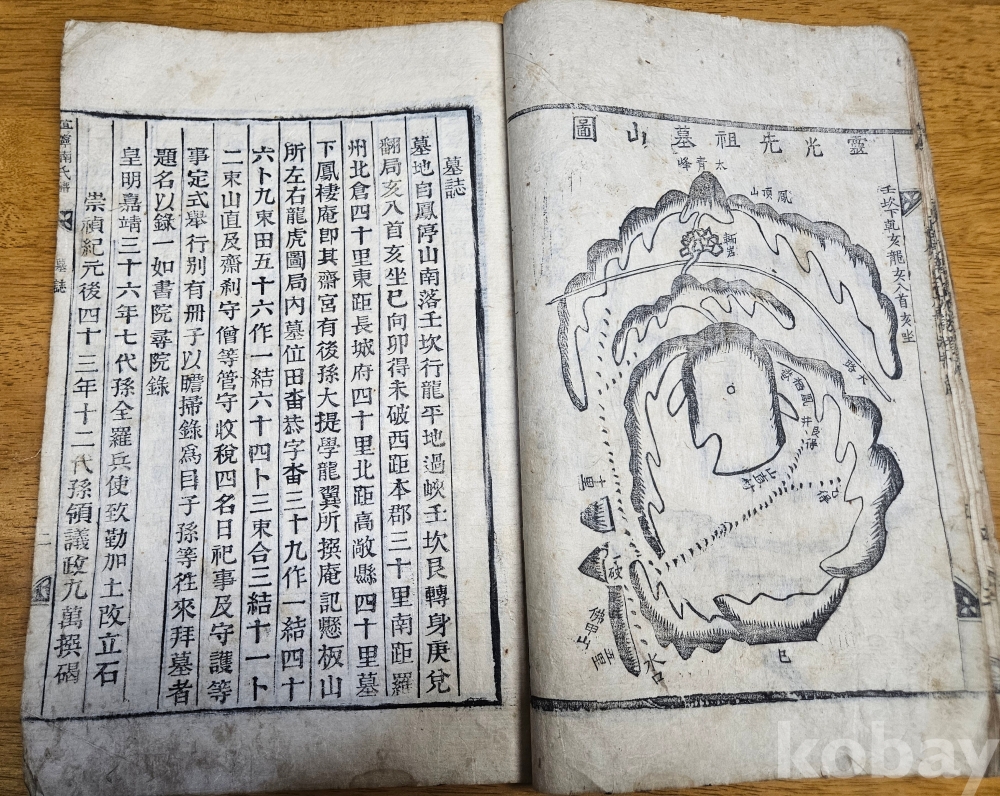 靈光先祖墓山圖
壬坎下乾亥龍亥入首亥坐
太青峰
鳳頂山
大路
鳳棲庵
井
山直村
十里
破
佛甲山
五里
水口
巳
墓誌
墓地自鳳停山南落壬坎行龍平地過峽壬坎艮轉身庚兌
翻局亥入首亥坐巳向卯得未破西距本郡三十里南距羅
州北倉四十里東距長城府四十里北距高敞縣四十里墓
下鳳棲庵卽其齋宮有後孫大提學龍翼所撰庵記懸板山
所左右龍虎圖局內墓位田畓恭字畓三十九作一結四十
六卜九束田五十六作一結六十四卜三束合三結十一卜
二束山直及齋刹守僧等管守收稅四名日祀事及守護等
事定式舉行別有册子以瞻掃錄爲目子孫等徃來拜墓者
題名以錄一如書院尋院錄
皇明嘉靖三十六年七代孫全羅兵使致勤加土改立石
崇禎紀元後四十三年十二代孫領議政九萬撰碣
宜寧南氏譜
墓誌
二
kobay